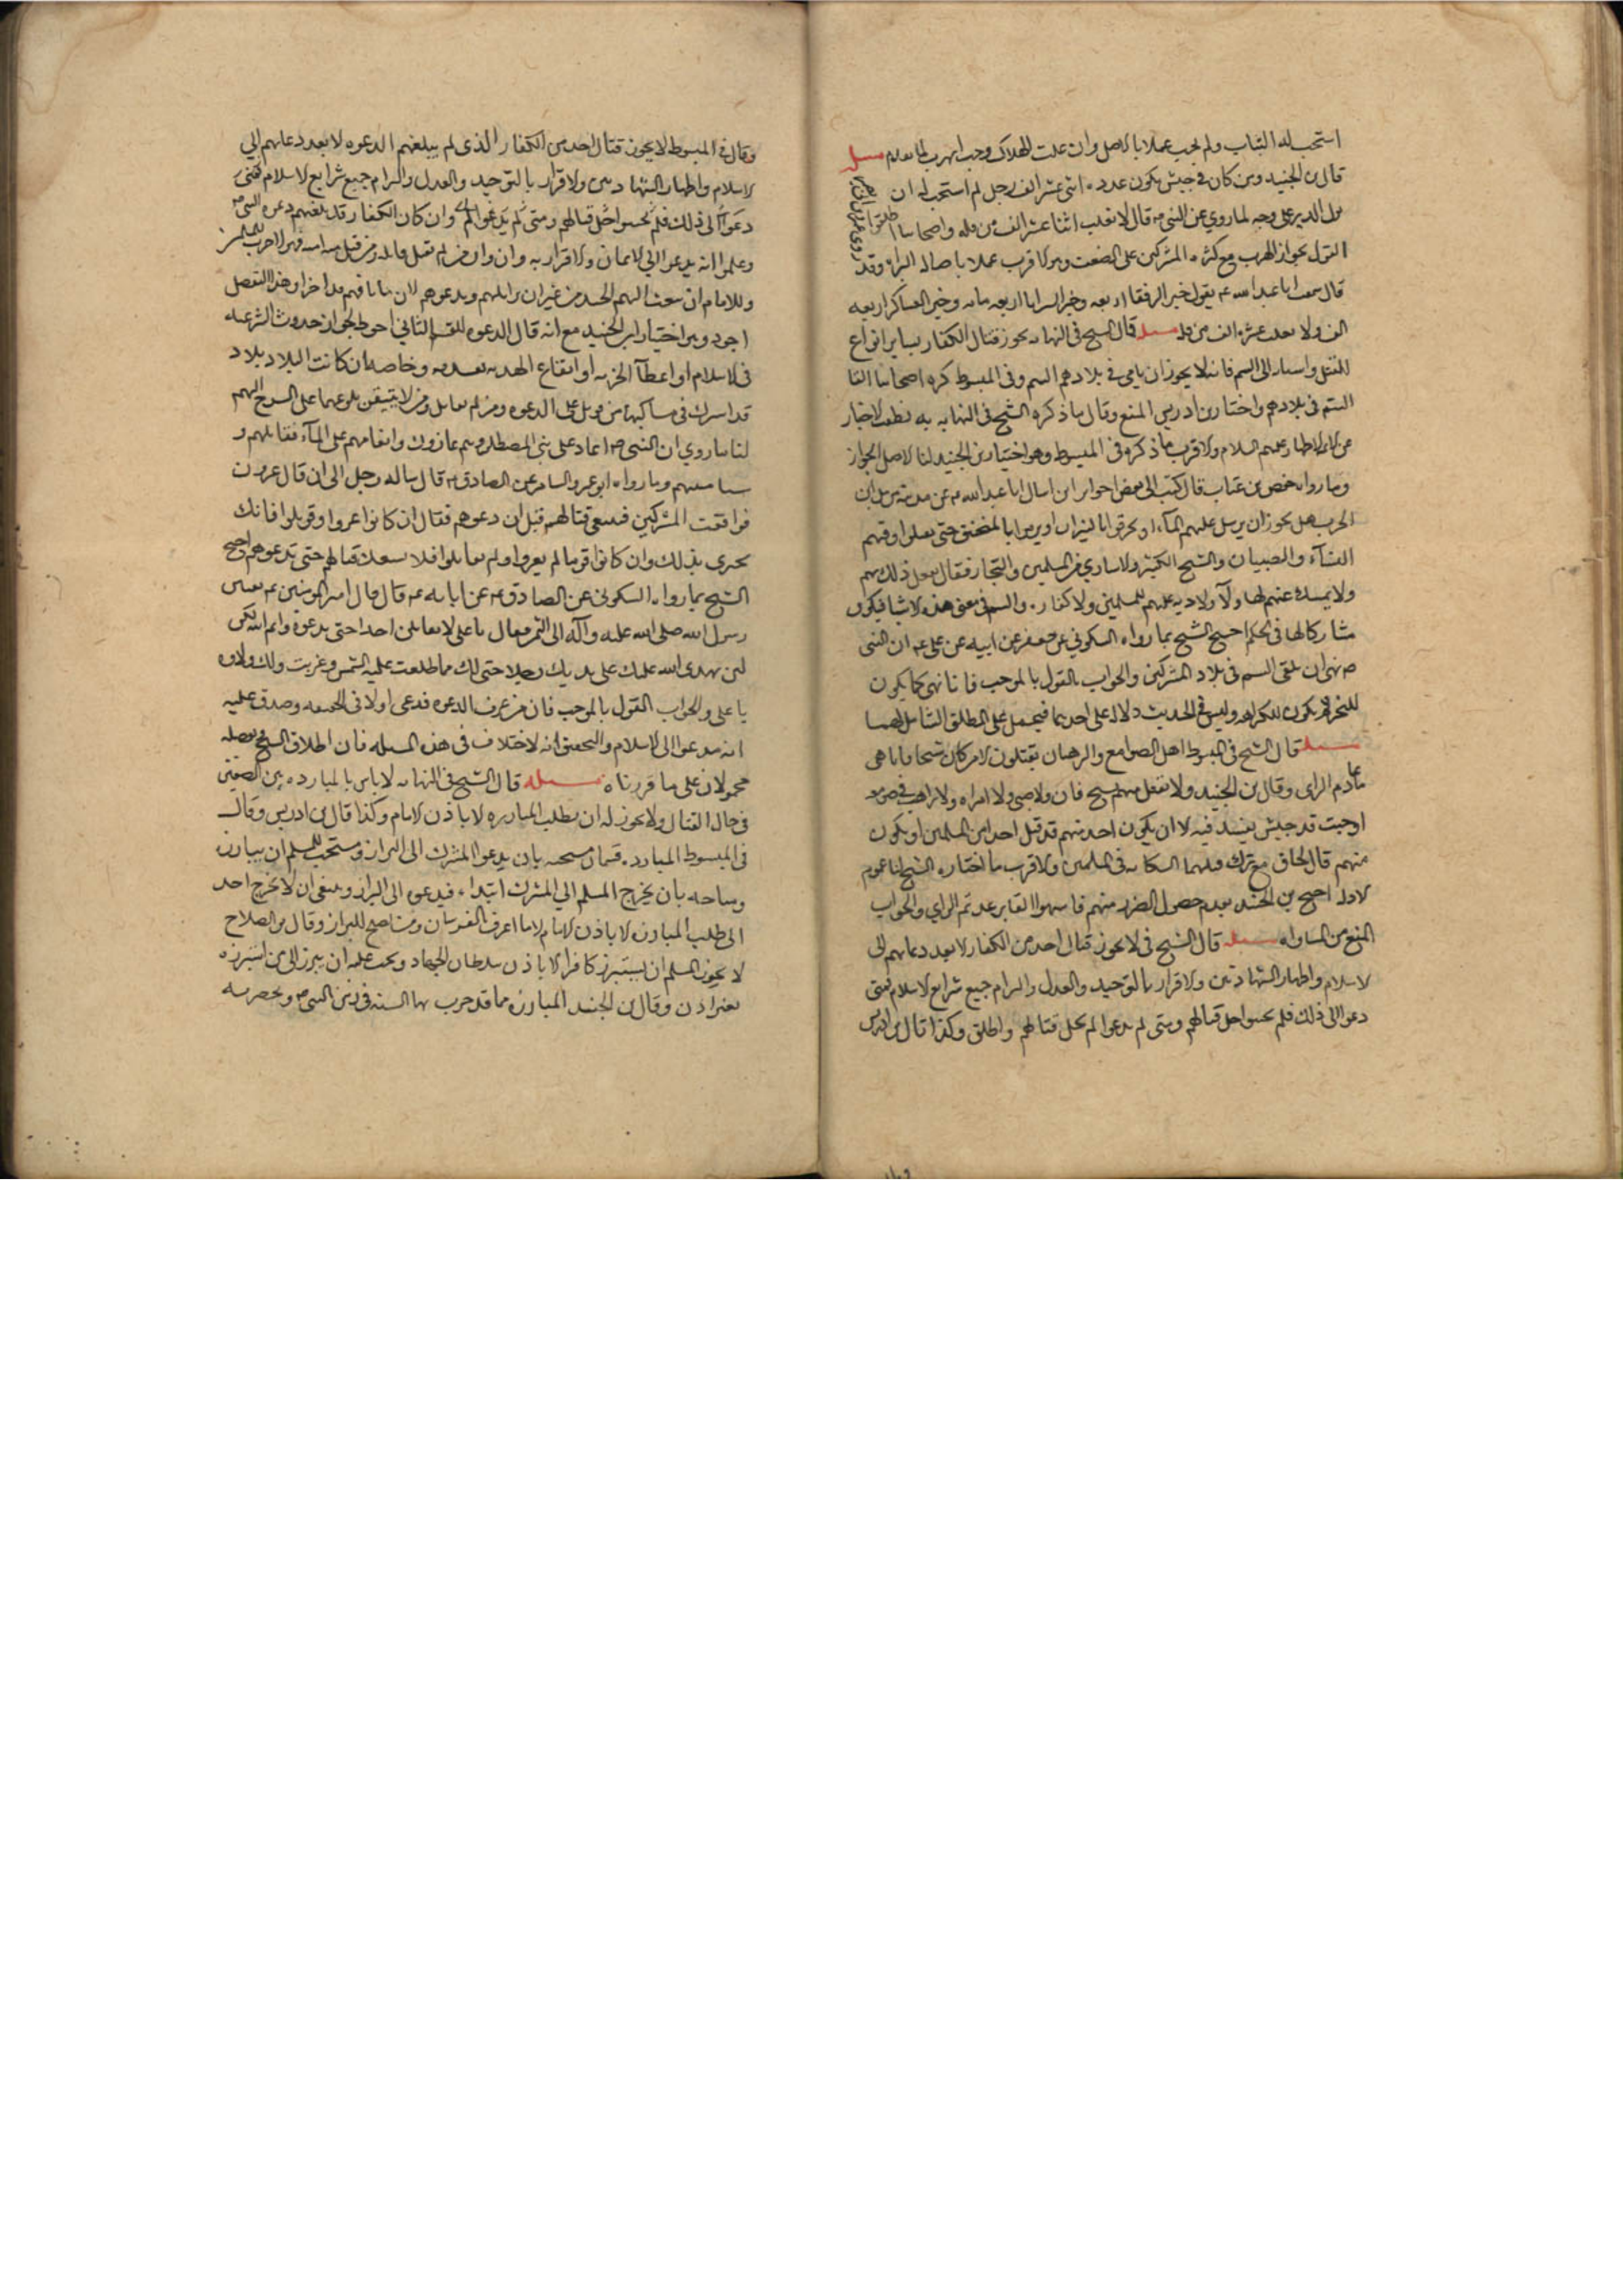 استحب له الثبات ولم يجب عملا بالاصل وان علمت الهلاك وجب الهرب لما تقدم مسله
قال بن الجنيد ومن كان في جيش يكون عدده اثنى عشر الف رجل لم استحب له ان
يولى الدبر على وجه لما روي عن النبي ص قال لا يغلب اثنا عشر الف من قله واصحابنا اطلقوا
القول بجواز الهرب مع كثره المشركين على الضعف وهو الاقرب عملا باصاله البراه وقد
روى فضيل بن خيثم
قال سمعت ابا عبد الله ع يقول خير الرفقا اربعه وخير السرايا اربعه مايه وخير العساكر اربعه
الف ولا يغلب عشره الف من قله مسله قال الشيخ في النهايه يجوز قتال الكفار بساير انواع
القتل واسبابه الا السم فانه لا يجوز ان يلقى في بلادهم السم وفي المبسوط كره اصحابنا القا
السم في بلادهم واختار بن ادريس المنع وقال ما ذكره الشيخ في النهايه به نطقت الاخبار
عن الايمه الاطهار عليهم السلام والاقرب ما ذكره في المبسوط وهو اختيار بن الجنيد لنا الاصل الجواز
وما رواه حفص بن غياث قال كتب الى بعض اخواني ان اسال ابا عبد الله ع عن مدينه من مداين
الحرب هل يجوز ان يرسل عليهم المآء او يحرقوا بالنيران او يرموا بالمنجنيق حتى يقتلوا وفيهم
النسآء والصبيان والشيخ الكبير والاسارى من المسلمين والتجار فقال يفعل ذلك بهم
ولا يمسك عنهم لهاولآ ولا ديه عليهم للمسلمين ولا كفاره والسم في معنى هذه الاشيا فيكون
مشاركا لها في الحكم احتج الشيخ بما رواه السكوني عن جعفر عن ابيه عن علي ع ان النبي
ص نهى ان يلقى السم في بلاد المشركين والجواب بالقول بالموجب فانا نهى كما يكون
للتحريم يكون للكراهه وليس في الحديث دلاله على احدهما فيحمل على المطلق الشامل لهما
مسله قال الشيخ في المبسوط اهل الصوامع والرهبان يقتلون الا من كان شيخا فانيا هما
عادم الراى وقال بن الجنيد ولا يقتل منهم شيخ فان ولا صبي ولا امراه ولا راهب في صومعه
او حيث قد حبس نفسه فيه الا ان يكون احد منهم قد قتل احدا من المسلمين او يكون
منهم قال لحاق مع ترك النكايه في المسلمين والاقرب ما اختاره الشيخ لنا عموم
الادله احتج بن الجنيد بعدم حصول الضرر منهم فاشبهوا الفاني عديم الراي والجواب
المنع من المساواه مسله قال الشيخ في لا يجوز قتال احد من الكفار الا بعد دعايهم الى
الاسلام واظهار الشهادتين والاقرار بالتوحيد والعدل والتزام جميع شرايع الاسلام فمتى
دعوا الى ذلك فلم يجيبوا حل قتالهم ومتى لم يدعوا لم يحل قتالهم واطلق وكذا قال بن ادريس
وقال في المبسوط لا يجوز قتال احد من الكفار الذى لم يبلغهم الدعوه الا بعد دعايهم الى
الاسلام واظهار الشهادتين والاقرار بالتوحيد والعدل والتزام جميع شرايع الاسلام فمتى
دعوا الى ذلك فلم يجيبوا حل قتالهم ومتى لم يدعوا لم وان كان الكفار قد بلغتهم دعوه النبي ص
وعلموا انه يدعو الى الايمان والاقرار به وان من لم يقبل قاتله ومن قبل منه امنه فهولا حرب للمسلمين
وللامام ان يبعث اليهم الجند من غير ان يراسلهم ويدعوهم لان ما بلغهم قد اجزا وهذا التفصيل
اجود وهو اختيار ابن الجنيد مع انه قال الدعوه للقسم الثاني احوط لجواز حدوث الرغبه
في الاسلام او اعطآ الجزيه او ايقاع الهدنه وخاصه ان كانت البلاد بلاد
قد اشرك في مساكنها من قوتل على الدعوه ومن لم يقاتل ومن لا يتيقن بلوغها على الشرح اليهم
لنا ما روي ان النبي ص اغار على بني المصطلق وهم غازون وانعامهم على المآء فقاتلهم و
سبا منهم وما رواه ابو عمرو السلمي عن الصادق ع قال ساله رجل الى ان قال غزوت
فواقعت المشركين فينبغي قتالهم قبل ان دعوهم فقال ان كانوا غزوا وقوتلوا فانك
تجتزى بذلك وان كانوا قوما لم يغزوا ولم يقاتلوا فلا يسعك قتالهم حتى تدعوهم احتج
الشيخ بما رواه السكوني عن الصادق ع عن ابايه ع قال قال امير المومنين ع بعثني
رسول الله صلى الله عليه وآله الى اليمن فقال يا علي لا تقاتلن احدا حتى تدعوه وايم الله
لين يهدى الله على يديك رجلا خير لك مما طلعت عليه الشمس وغربت ولك ولاوه
يا علي والجواب القول بالموجب فان من عرف الدعوه قد دعى اولا في الحقيقه وصدق عليه
انه مدعوا الى الاسلام والتحقيق انه لا خلاف في هذه المسله فان اطلاق الشيخ وتفصيله
محمولان على ما قررناه مسله قال الشيخ في النهايه لا باس بالمبارزه بين الصفين
في حال القتال ولا يجوز له ان يطلب المبارزه الا باذن الامام وكذا قال بن ادريس وقال
في المبسوط المبارزه قسمان مستحبه بان يدعو المشرك الى البراز ويستحب للمسلم ان يبارزه
ومباحه بان يخرج المسلم الى المشرك ابتداء فيدعوه الى البراز وينبغي ان لا يخرج احد
الى طلب المبارزه الا باذن الامام او الامام اعرف بالفرسان ومن يصلح للبراز وقال ابو الصلاح
لا يجوز للمسلم ان يستبرز كافرا الا باذن سلطان الجهاد ويجب عليه ان يبرز الى من استبرزه
بغير اذن وقال بن الجنيد المبارزه مما قد جرت بها السنه في زمن النبي ص وبحضرته